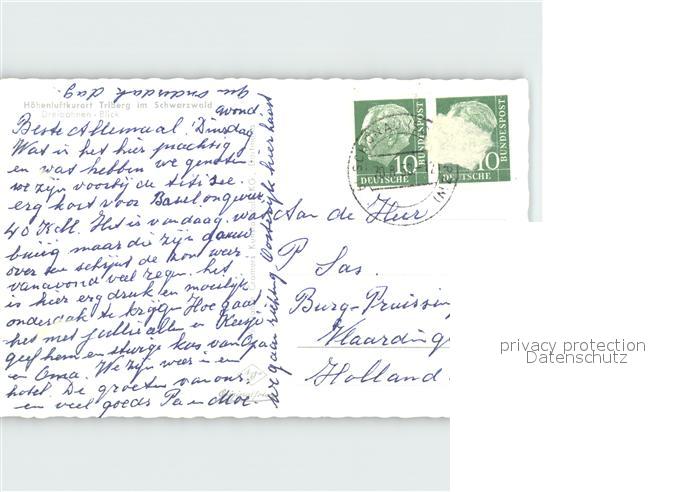 Höhenluftkurort Triberg im Schwarzwald
Dreibahnen-Blick
Dinsdag avond.
Beste Allemaal!
Wat is het hier prachtig
en wat hebben we genoten
we zijn voorbij de titisee
erg kort voor Basel ongeveer
40 Kilt. Het is vandaag wat
buiig maar die zijn
over en schijnt de zon weer
vanavond veel regen. het
is hier erg druk en moeilijk
onderdak te krijgen Hoe gaat
het met jullie allen en Keesje
geef hem en stevige kus van Opa
en Oma. We zijn weer in een
hotel. De groeten van ons.
en veel goeds Pa en Moe.
we gaan richting Oostenrijk hier heest
onderdak dag.
10
DEUTSCHE
BUNDESPOST
10
DEUTSCHE
BUNDESPOST
Aan de Heer
P Sas.
Burg-Pruissin
Vlaarding
Holland
privacy protection
Datenschutz